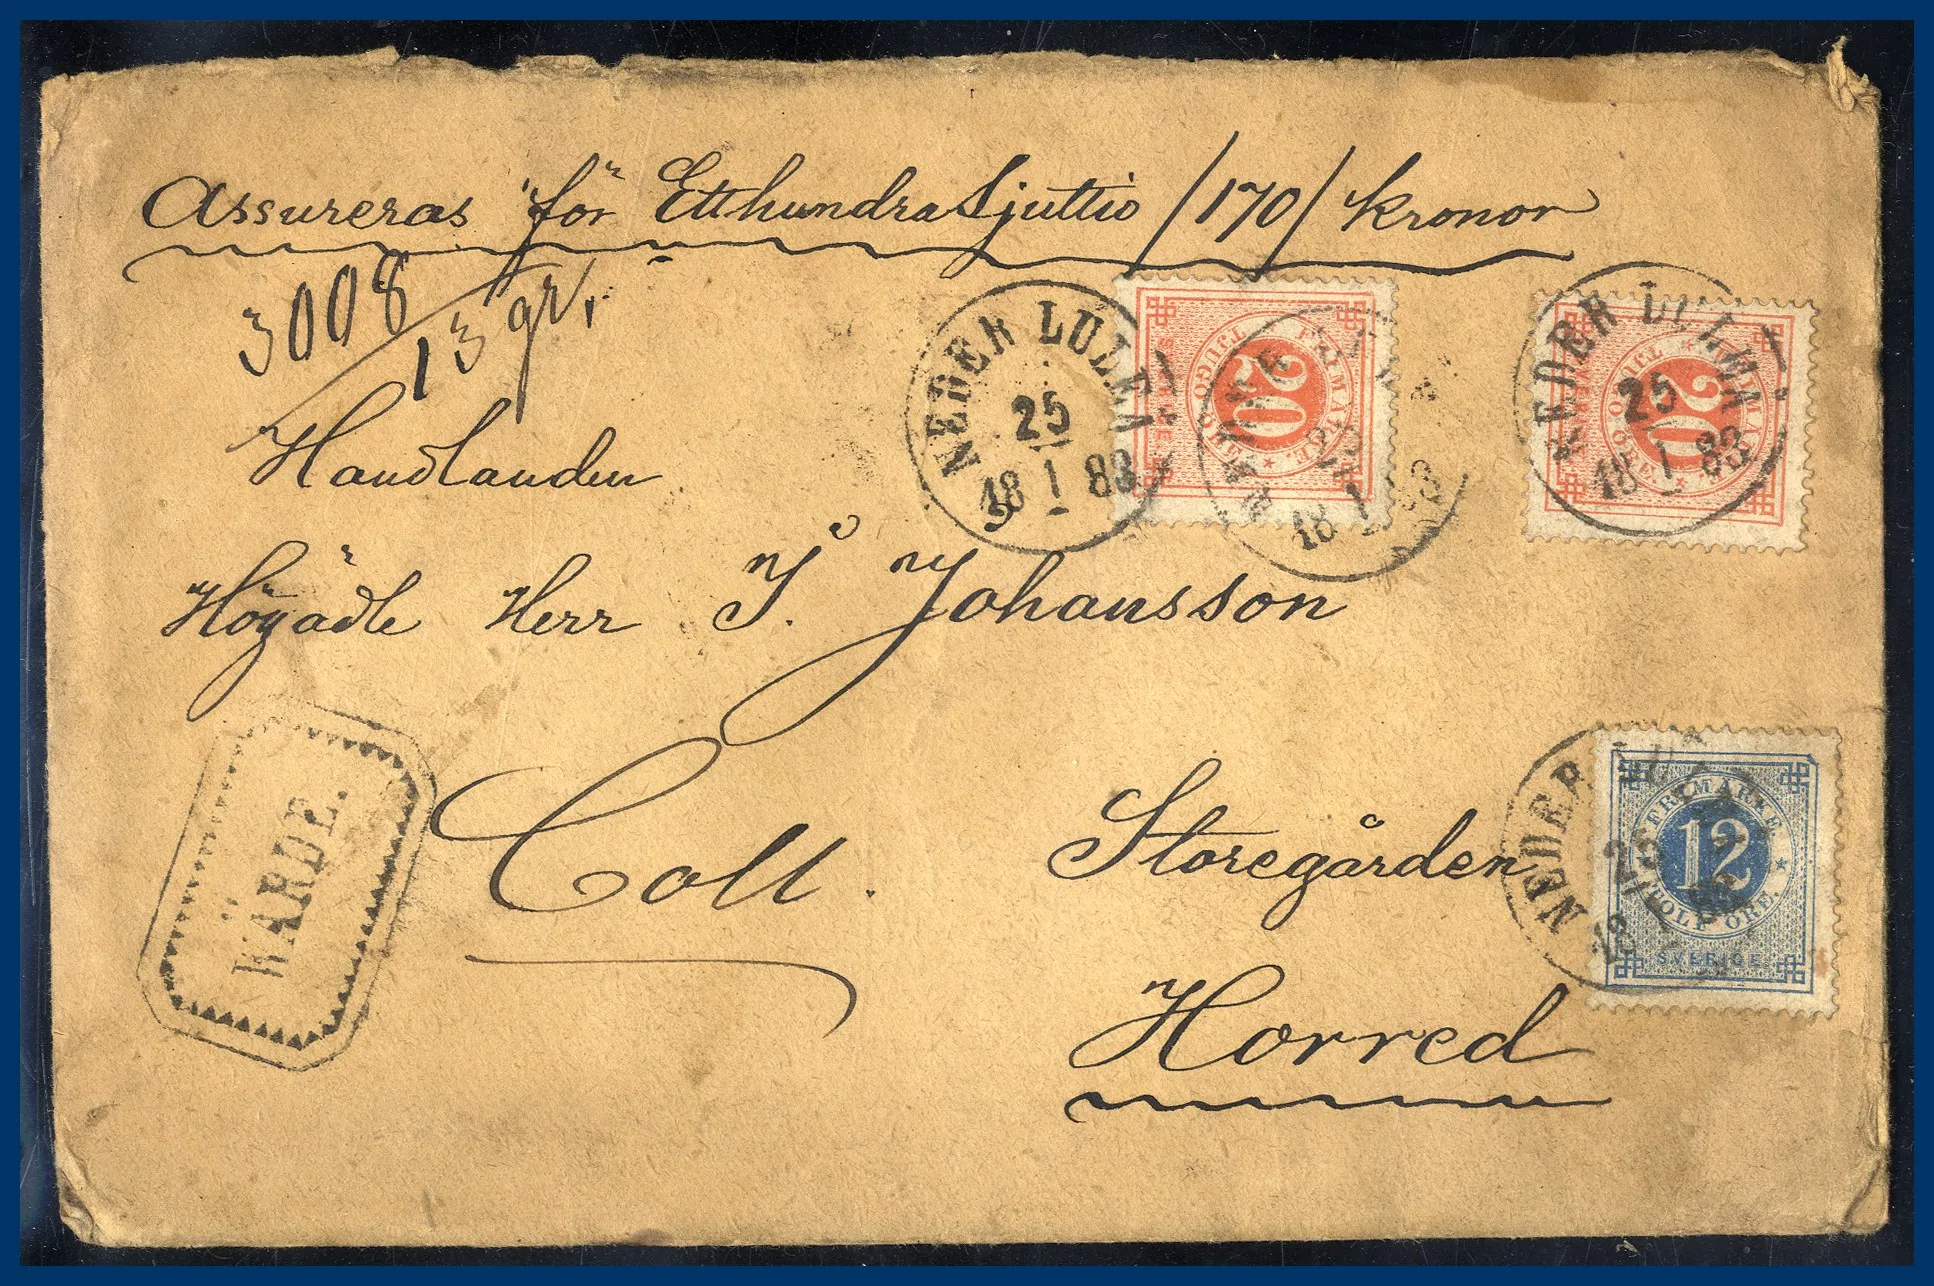 Assureras för Etthundrasjuttio /170/ kronor
3008
13 gr.
NEDER LULEÅ
25
18 1 83
FRIMÄRKE
TJUGO ÖRE
20
18 1 83
NEDER LULEÅ
25
18 1 83
FRIMÄRKE
TJUGO ÖRE
20
SVERIGE
Handlanden
Högädle Herr J. Johansson
WÄRDE.
Coll.
Storegården
Horred
NEDER
FRIMÄRKE
12
TOLF ÖRE
SVERIGE